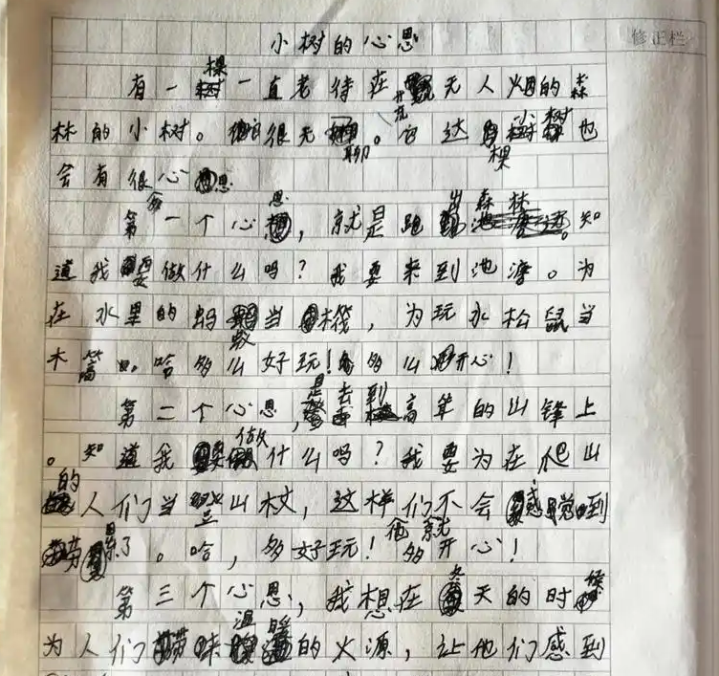 小树的心思
修正栏
有一棵一直老待在无人烟的森
林的小树。它很无聊。它这棵小树也
会有很多心思
第一个心思，就是跑出森林。知
道我要做什么吗？我要来到池塘。为
在水里的蚂蚁当木筏，为玩水松鼠当
木筏。哈多么好玩！多么开心！
第二个心思，是去到高耸的山锋上
。知道我要做什么吗？我要为在爬山
的人们当登山杖，这样们不会感觉到
劳累了。哈，多好玩！他就多开心！
第三个心思，我想在冬天的时候
为人们带味温暖的火源，让他们感到